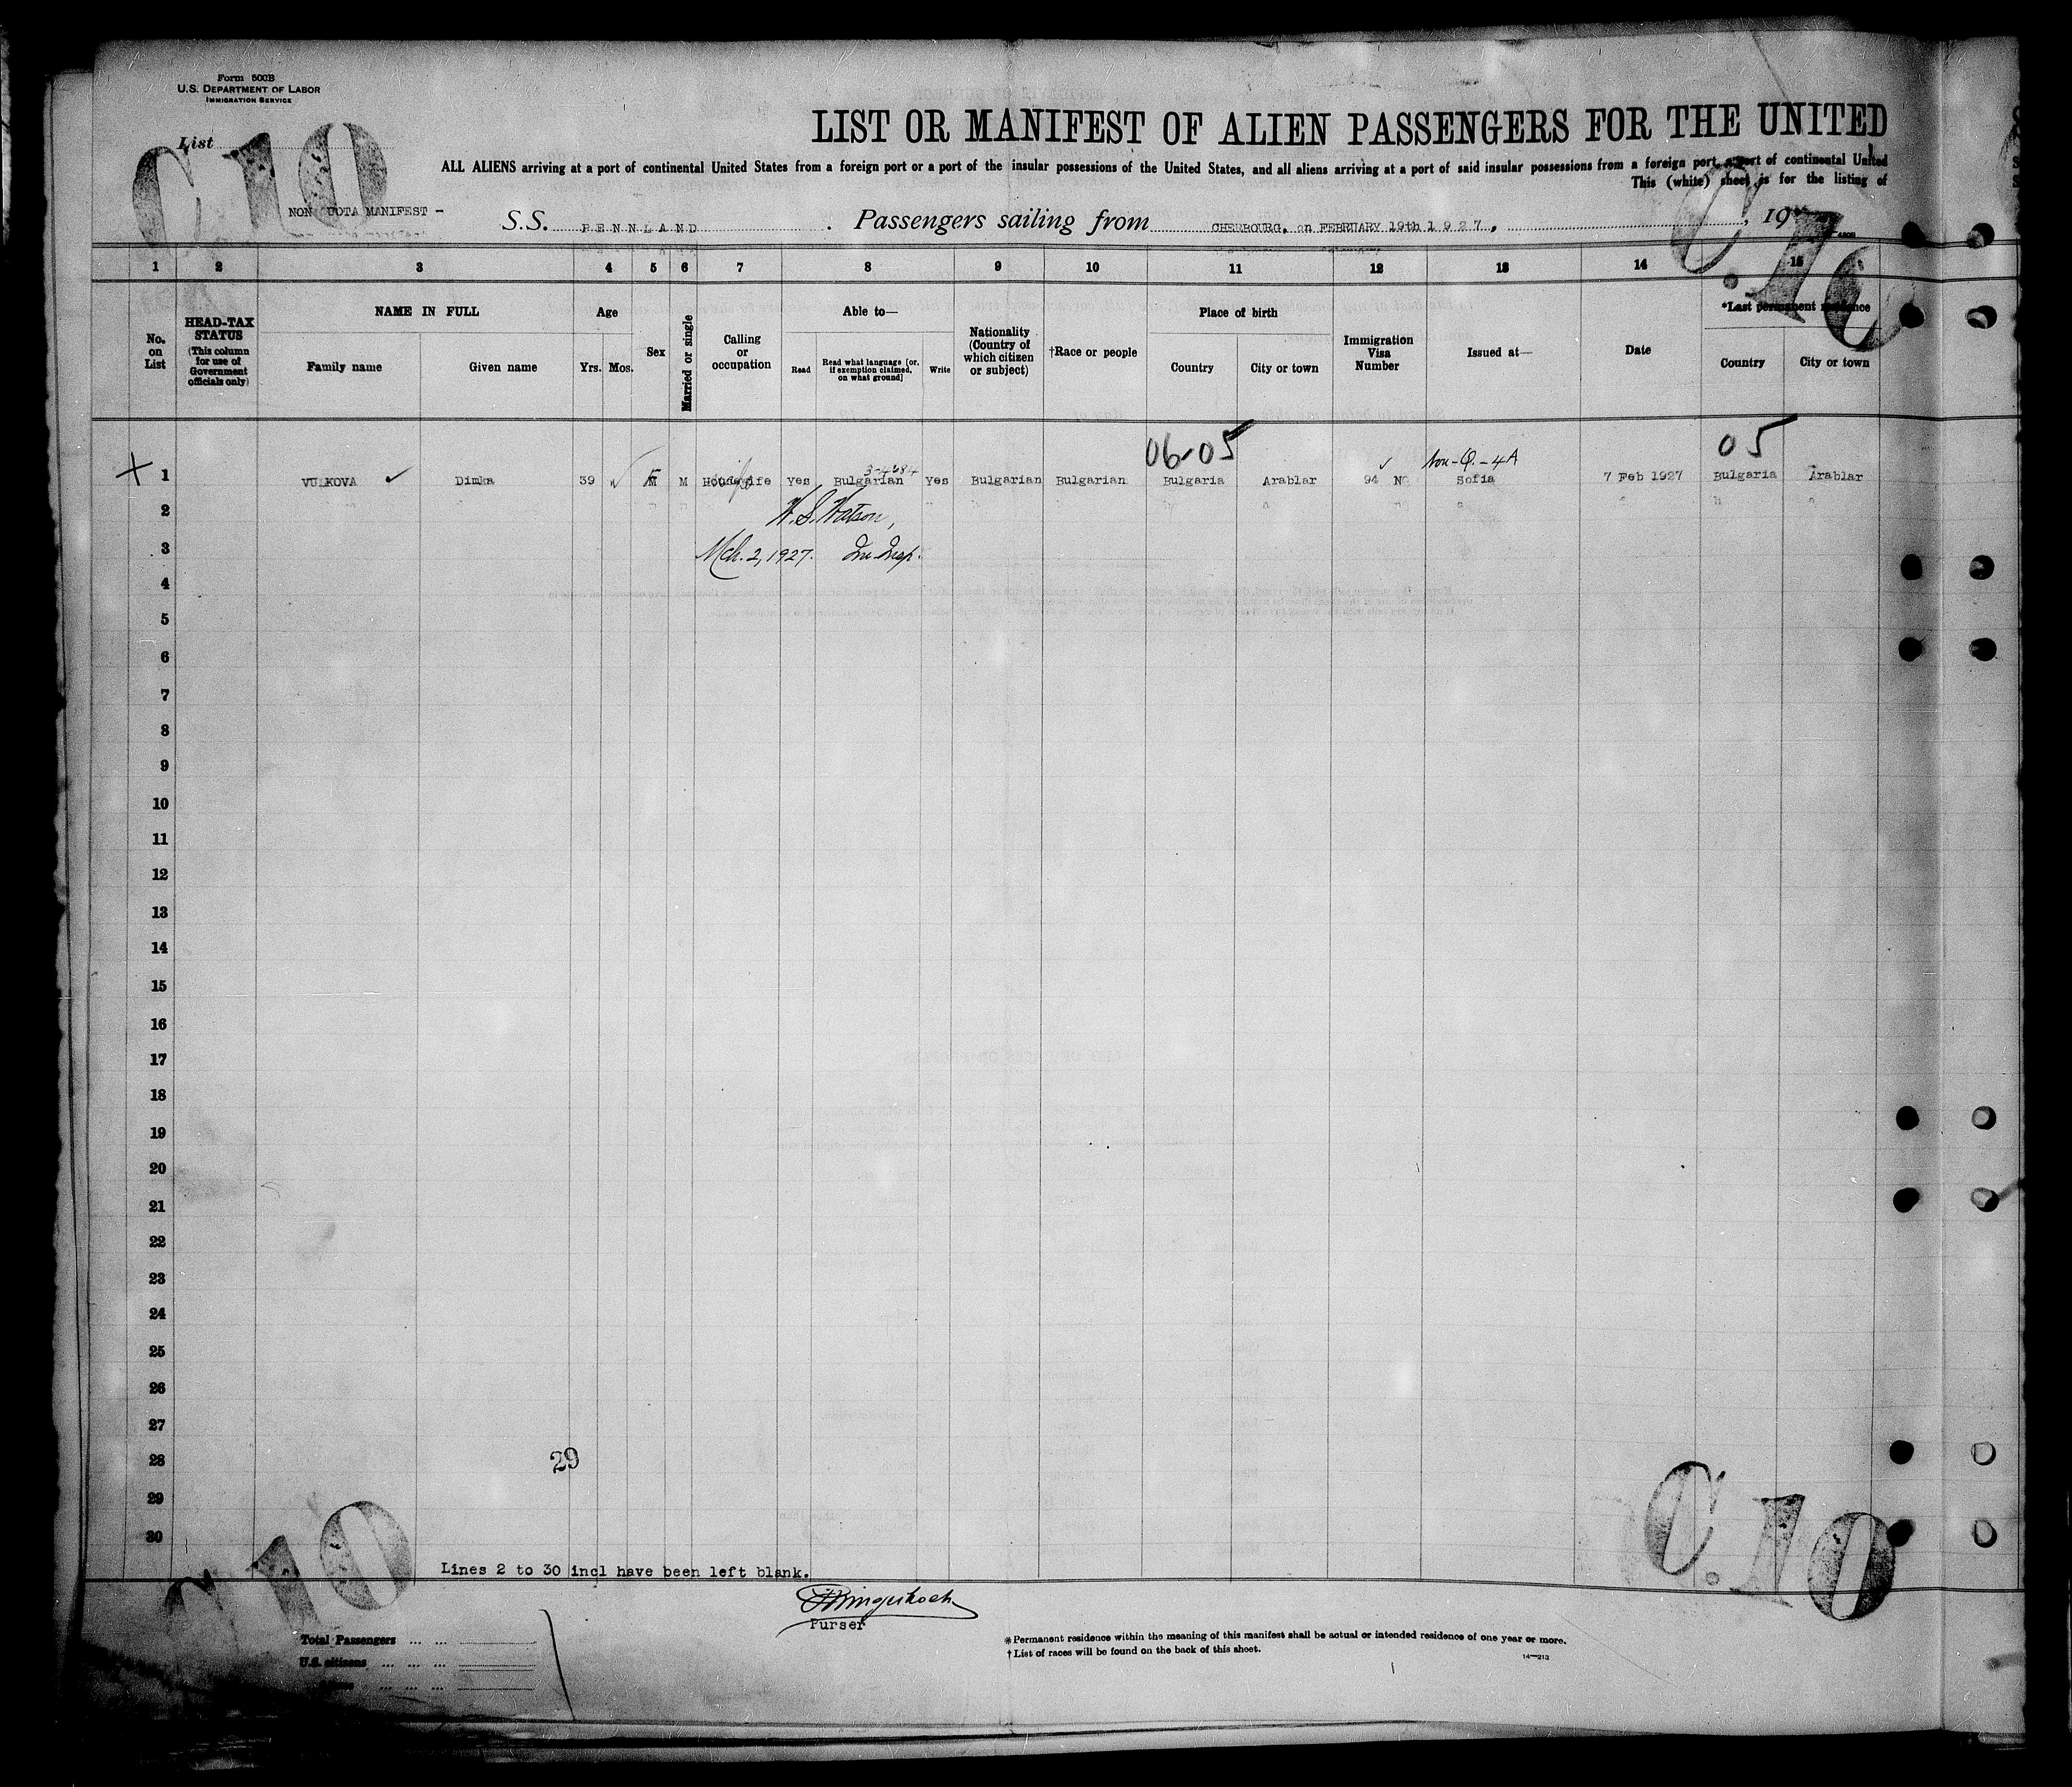 Form 500B
U.S. DEPARTMENT OF LABOR
IMMIGRATION SERVICE
List
C 10
LIST OR MANIFEST OF ALIEN PASSENGERS FOR THE UNITED
ALL ALIENS arriving at a port of continental United States from a foreign port or a port of the insular possessions of the United States, and all aliens arriving at a port of said insular possessions from a foreign port, a port of continental United
This (white) sheet is for the listing of
NON UOTA MANIFEST -
S.S. PENNLAND . Passengers sailing from CHERBOURG, on FEBRUARY 19th 1927. , 19
C.10
1 2 3 4 5 6 7 8 9 10 11 12 13 14 15
No. on List
HEAD-TAX STATUS
(This column for use of Government officials only)
NAME IN FULL
Family name Given name
Age
Yrs. Mos.
Sex
Married or single
Calling or occupation
Able to—
Read
Read what language [or, if exemption claimed, on what ground]
Write
Nationality (Country of which citizen or subject)
†Race or people
Place of birth
Country City or town
Immigration Visa Number
Issued at—
Date
*Last permanent residence
Country City or town
06-05 05
Non-Q.-4A
X 1 VULKOVA ✓ Dimka 39 F M Housewife Yes Bulgarian Yes Bulgarian Bulgarian Bulgaria Arablar 94 NQ Sofia 7 Feb 1927 Bulgaria Arablar
2 W. S. Watson,
3 Mch. 2, 1927. Im. Insp.
4
5
6
7
8
9
10
11
12
13
14
15
16
17
18
19
20
21
22
23
24
25
26
27
28 29
29
30
C.10
10
Lines 2 to 30 incl have been left blank.
Purser
Total Passengers ... ...
U.S. citizens ... ... ...
*Permanent residence within the meaning of this manifest shall be actual or intended residence of one year or more.
†List of races will be found on the back of this sheet.
14—213